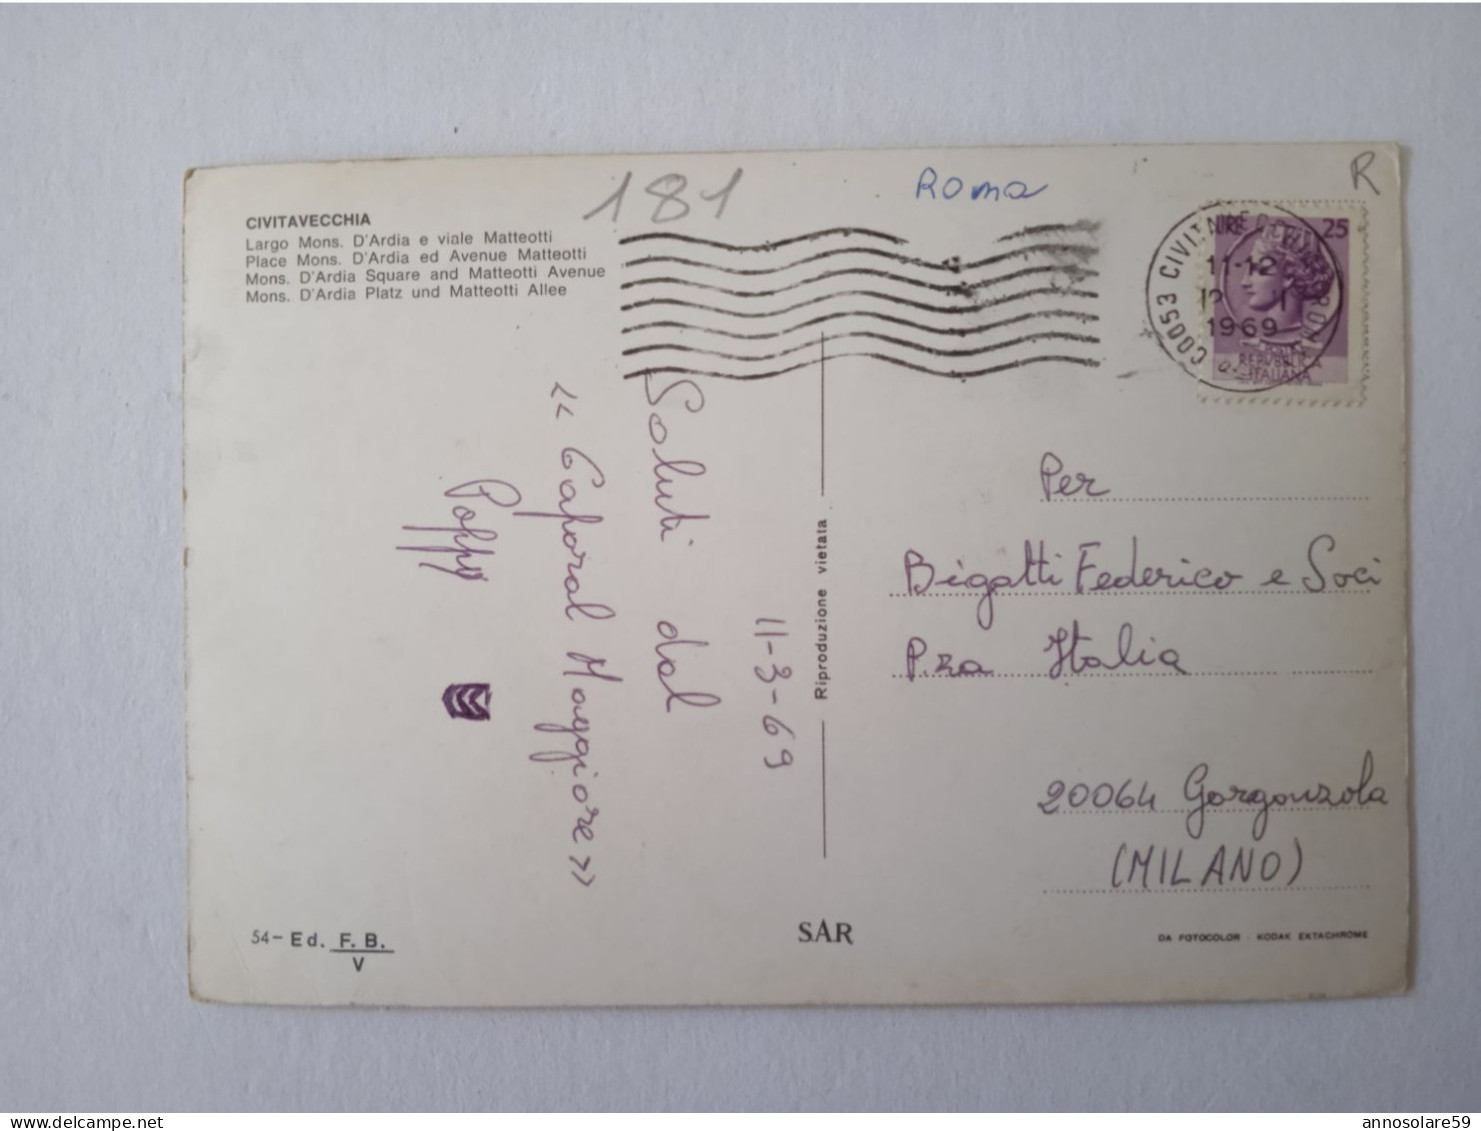 CIVITAVECCHIA
Largo Mons. D'Ardia e viale Matteotti
Place Mons. D'Ardia ed Avenue Matteotti
Mons. D'Ardia Square and Matteotti Avenue
Mons. D'Ardia Platz und Matteotti Allee
181
Roma
R
LIRE 25
11-12
1969
REPVBBLICA
ITALIANA
11-3-69
Saluti dal
« Caporal Maggiore »
Poppi
Riproduzione vietata
Per
Bigatti Federico e Soci
P.za Italia
20064 Gorgonzola
(MILANO)
54 - Ed. F. B.
V
SAR
DA FOTOCOLOR - KODAK EKTACHROME
annosolare59